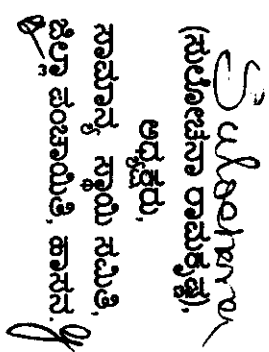 Sulochana
(ಸುಲೋಚನಾ ರಾಮಕೃಷ್ಣ).
ಅಧ್ಯಕ್ಷರು,
ಸಾಮಾನ್ಯ ಸ್ಥಾಯಿ ಸಮಿತಿ,
ಜಿಲ್ಲಾ ಪಂಚಾಯಿತಿ, ಹಾಸನ.